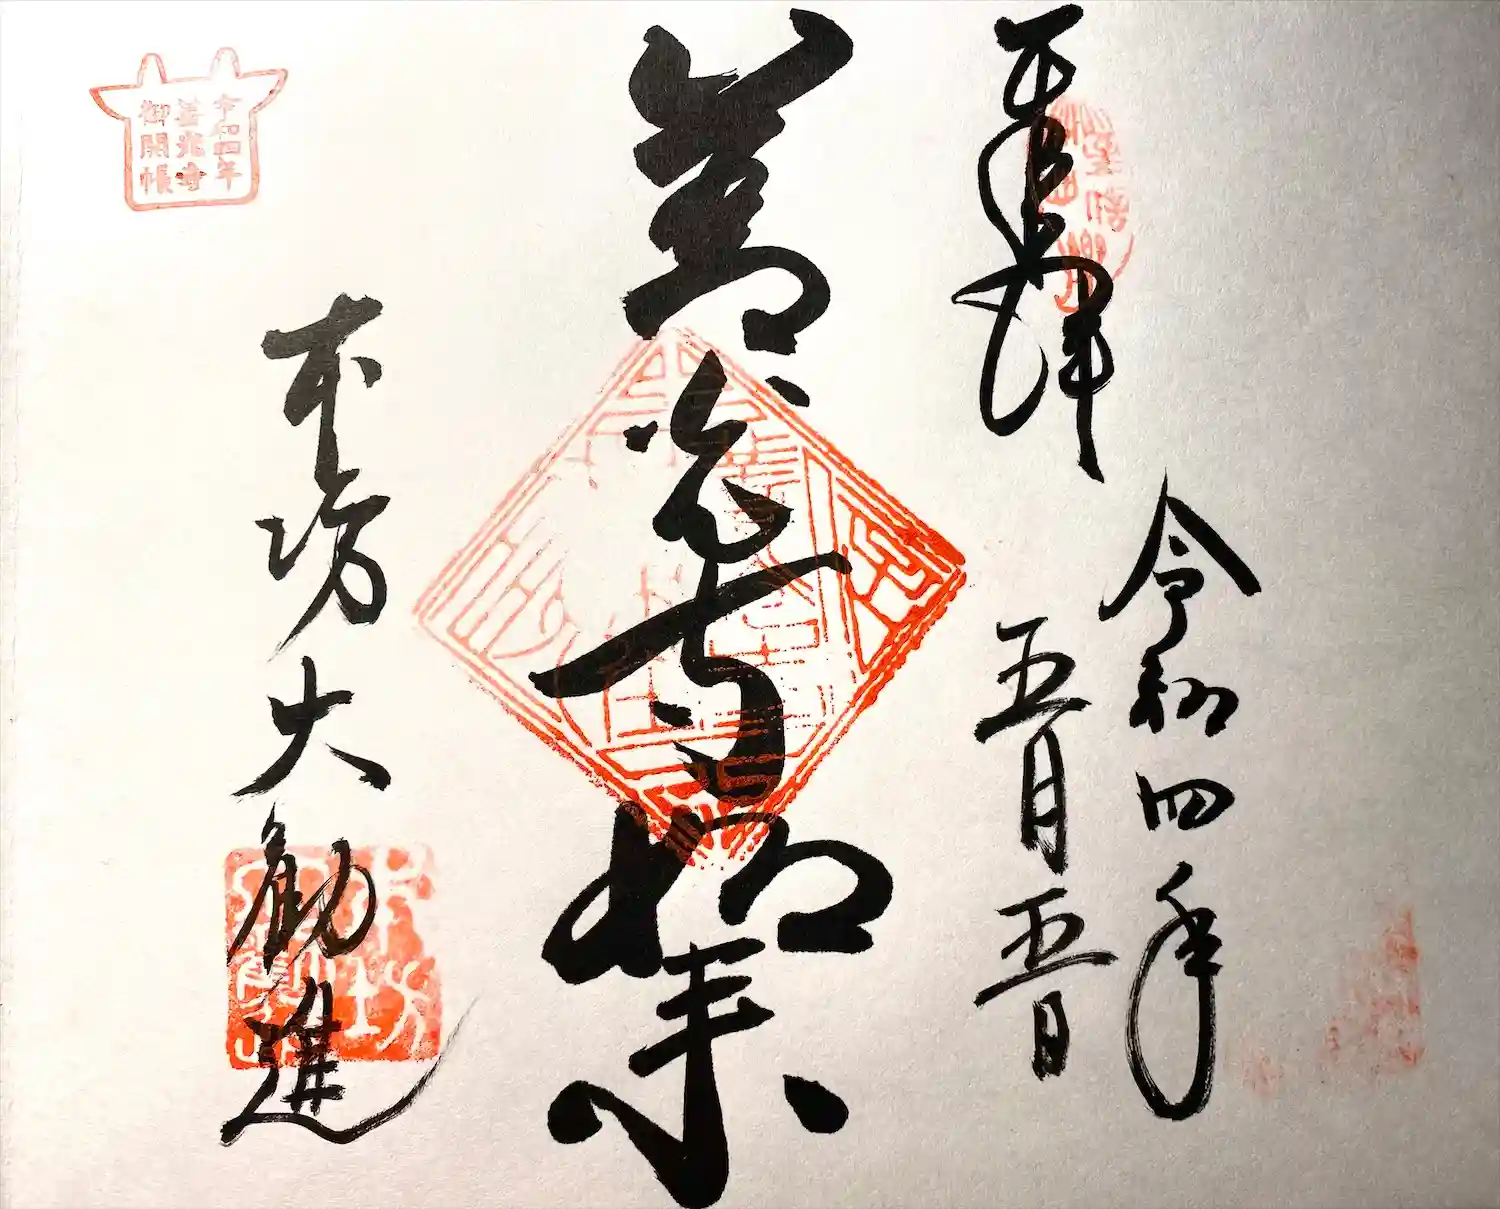 奉拝
令和四年
五月五日
善光寺如来
本坊大勧進
令和四年
善光寺
御開帳